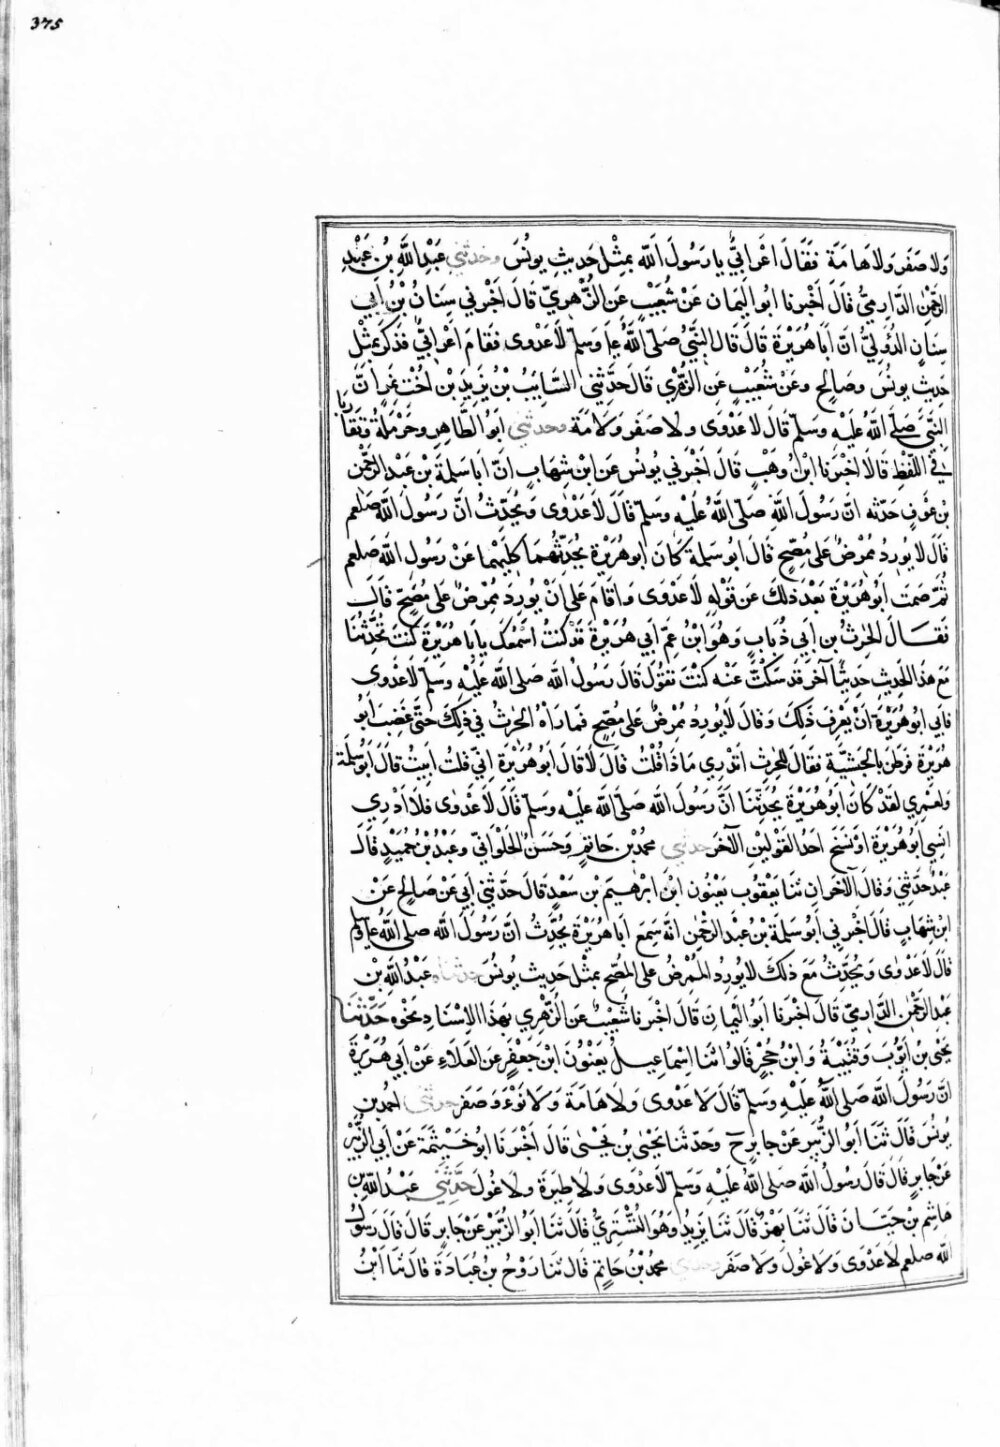 375
وَلَا صَفَرَ وَلَا هَامَةَ فَقَالَ اَعْرَابِيٌّ يَا رَسُولَ اللّٰه بِمِثْلِ حَدِيثِ يُونُسَ وحَدثني عَبْدُ اللّٰهِ بْنُ عَبْدِ
الرَّحْمٰنِ الدَّارِمِيُّ قَالَ اَخْبَرَنَا ابُو اليَمَانِ عَنْ شُعَيْبٍ عَنِ الزُّهْرِيِّ قَالَ اَخْبَرَنِي سِنَانُ بْنُ اَبِي
سِنَانٍ الدُّؤَلِيُّ اَنَّ اَبَا هُرَيْرَةَ قَالَ قَالَ النَّبِيُّ صَلّى اللّٰهُ عليه وَسَلّم لَا عَدْوَى فَقَامَ اَعْرَابِيٌّ فَذَكَرَ بِمِثْلِ
حَدِيثِ يُونُسَ وَصَالِحٍ وَعَنْ شُعَيْبٍ عَنِ الزُّهْرِي قَالَ حَدَّثَنِي السَّايِبُ بْنُ يَزِيدَ بْنِ اُخْتِ نَمِرٍ اَنَّ
النَّبِيَّ صَلَّى اللّٰهُ عَلَيْهِ وَسَلَّم قَالَ لَا عَدْوَى وَلَا صَفَرَ وَلَا هَامَةَ وحدثني اَبُو الطَّاهِرِ وَحَرْمَلَةُ وَتَقَارَبَا
فِي اللَّفْظِ قَالَا اَخْبَرَنَا ابْنُ وَهْبٍ قَالَ اَخْبَرَنِي يُونُسُ عَنِ ابْنِ شِهَابٍ اَنَّ اَبَا سَلَمَةَ بْنَ عَبْدِ الرَّحْمٰنِ
بْنِ عَوْفٍ حَدّثه اَنَّ رَسُولَ اللّٰهِ صَلّى اللّٰهُ عَلَيْهِ وَسَلّم قَالَ لَا عَدْوٰى وَيُحَدِّثُ اَنَّ رَسُولَ اللّٰه صَلعم
قَالَ لَا يُورِدُ مُمْرِضٌ عَلى مُصِحٍّ قَالَ اَبُو سَلَمَةَ كَانَ اَبُو هُرَيْرَةَ يُحَدِّثُهُمَا كِلَيْهِمَا عَنْ رَسُولِ اللّٰه صَلعم
ثُمَّ صَمَتَ اَبُو هُرَيْرَةَ بَعْدَ ذٰلِكَ عَنْ قَوْلِهِ لَا عَدْوَى وَاَقَامَ عَلى اَنْ يُورِدَ مُمْرِضٌ عَلى مُصِحٍّ قَالَ
فَقَالَ الحٰرِثُ بن اَبِي ذُبَابٍ وَهُوَ ابْنُ عَمِّ اَبِي هُرَيْرَةَ قَدْ كُنْتُ اَسْمَعُكَ يَا اَبَا هُرَيْرَةَ كُنْتَ تُحَدِّثُنَا
مَعَ هٰذَا الحَدِيثِ حَدِيثًا آخَرَ قَدْ سَكَتَّ عَنْهُ كُنْتَ تَقُولُ قَالَ رَسُولُ اللّٰه صَلى اللّٰه عَلَيْهِ وَسَلّم لَا عَدْوَى
فَاَبَى اَبُو هُرَيْرَةَ اَنْ يَعْرِفَ ذٰلِكَ وَقَالَ لَا يُورِدُ مُمْرِضٌ عَلى مُصِحٍّ فَمَا رَاٰهُ الحٰرِثُ فِي ذٰلِكَ حَتَّى غَضِبَ اَبُو
هُرَيْرَةَ فَرَطَنَ بِالحَبَشِيَّةِ فَقَالَ لِلْحٰرِثِ اَتَدْرِي مَاذَا قُلْتُ قَالَ لَا قَالَ اَبُو هُرَيْرَةَ اِنِّي قُلْتُ اَبَيْتُ قَالَ اَبُو سَلَمَةَ
وَلَعَمْرِي لَقَدْ كَانَ اَبُو هُرَيْرَةَ يُحَدِّثُنَا اَنَّ رَسُولَ اللّٰه صَلّى اللّٰه عَلَيْهِ وَسَلّم قَالَ لَا عَدْوٰى فَلَا اَدْرِي
اَنَسِيَ اَبُو هُرَيْرَةَ اَوْ نَسَخَ اَحَدُ القَوْلَيْنِ الآخَرَ حدثني مُحَمَّدُ بْنُ حَاتِمٍ وَحَسَنٌ الحُلْوَانِيُّ وَعَبْدُ بْنُ حُمَيْدٍ قَالَ
عَبْدٌ حَدَّثَنِي وَقَالَ الآخَرَانِ ثَنَا يَعْقُوبُ يَعْنُونَ ابْنَ اِبْرٰهِيمَ بْنِ سَعْدٍ قَالَ حَدّثَنِي اَبِي عَنْ صَالِحٍ عَنْ
ابْنِ شِهَابٍ قَالَ اَخْبَرَنِي اَبُو سَلَمَةَ بْنُ عَبْدِ الرَّحْمٰنِ اَنَّهُ سَمِعَ اَبَا هُرَيْرَةَ يُحَدِّثُ اَنَّ رَسُولَ اللّٰه صَلى اللّٰهُ عليه وسلم
قَالَ لَا عَدْوٰى وَيُحَدِّثُ مَعَ ذٰلِكَ لَا يُورِدُ المُمْرِضُ عَلَى المُصِحِّ بِمِثْلِ حَدِيثِ يُونُسَ حدثناه عَبْدُ اللّٰهِ بْنُ
عَبْدِ الرَّحْمٰنِ الدَّارِمِيُّ قَالَ اَخْبَرَنَا اَبُو اليَمَانِ قَالَ اَخْبَرَنَا شُعَيْبٌ عَنِ الزُّهْرِي بِهَذَا الاِسْنَادِ نَحْوَهُ حَدَّثَنَا
يَحْيَى بْنُ اَيُّوبَ وَقُتَيْبَةُ وَابْنُ حُجْرٍ قَالُوا ثَنَا اِسْمَاعِيلُ يَعْنُونَ ابْنَ جَعْفَرٍ عَنِ العَلَاءِ عَنْ اَبِي هُرَيْرَةَ
اَنَّ رَسُولَ اللّٰه صَلى اللّٰهُ عَلَيْهِ وَسَلّم قَالَ لَا عَدْوَى وَلَا هَامَةَ وَلَا نَوْءَ وَصَفَرَ حدثني اَحمدُ بن
يُونُسَ قَالَ ثَنَا اَبُو الزُّبَيْرِ عَنْ جَابِرٍ ح وَحَدّثَنَا يَحْيٰى بْنُ يَحْيٰى قَالَ اَخْبَرَنَا اَبُو خَيْثَمَةَ عَنْ اَبِي الزُّبَيْرِ
عَنْ جَابِرٍ قَالَ قَالَ رَسُولُ اللّٰه صَلى اللّٰهُ عَلَيْهِ وَسَلّم لَا عَدْوَى وَلَا طِيَرَةَ وَلَا غُولَ حَدّثني عَبْدُ اللّٰهِ بن
هَاشِمِ بْنِ حَيَّانَ قَالَ ثَنَا بَهْزٌ قَالَ ثَنَا يَزِيدُ وَهُوَ التُّسْتَرِيُّ قَالَ ثَنَا اَبُو الزُّبَيْرِ عَنْ جَابِرٍ قَالَ قَالَ رَسُولُ
اللّٰه صلعم لَا عَدْوَى وَلَا غُولَ وَلَا صَفَرَ وحدثني مُحَمَّدُ بْنُ حَاتِمٍ قَالَ ثَنَا رَوْحُ بن عُبَادَةَ قَالَ ثَنَا ابْنُ